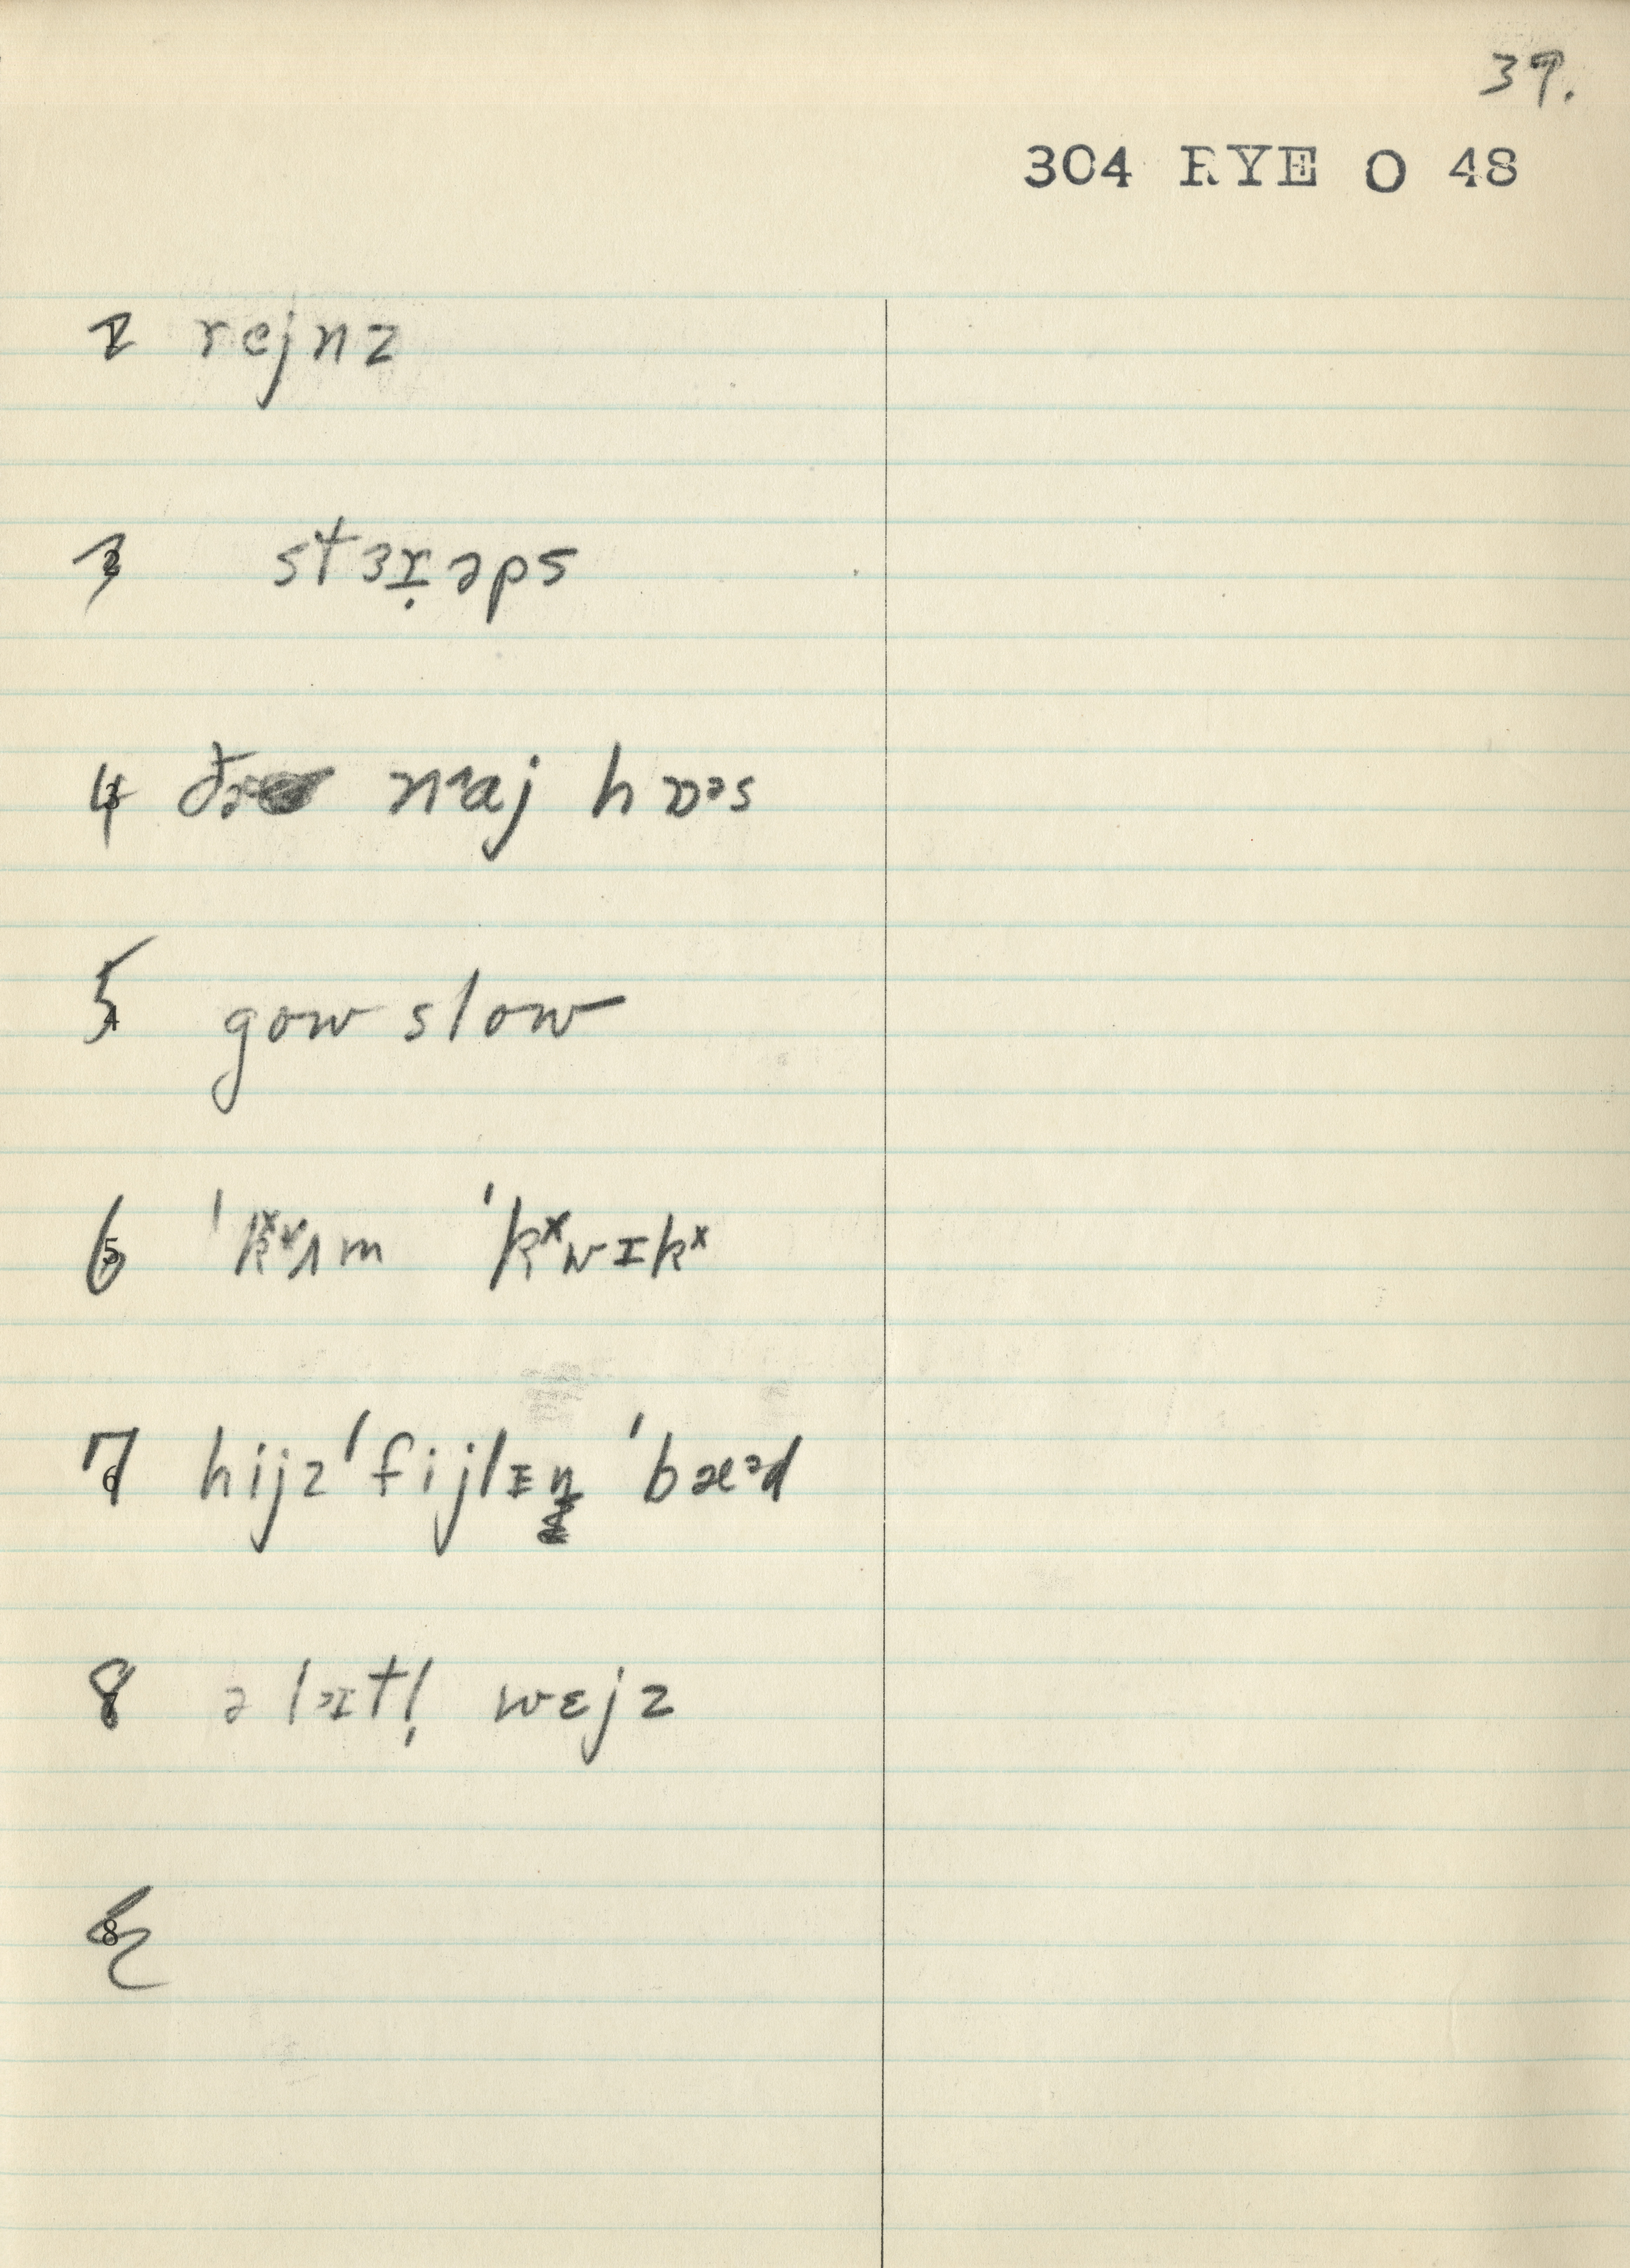 39.
304 RYE O 48
2 rejnz
3 stɜɪ̣əps
4 naj hɒᵊs
5 gow slow
6 ˈkˣʌm ˈkˣwɪkˣ
7 hijz ˈfijlɪŋ ˈbæᵊd
8 ə lɪtl̩ wɛjz
8